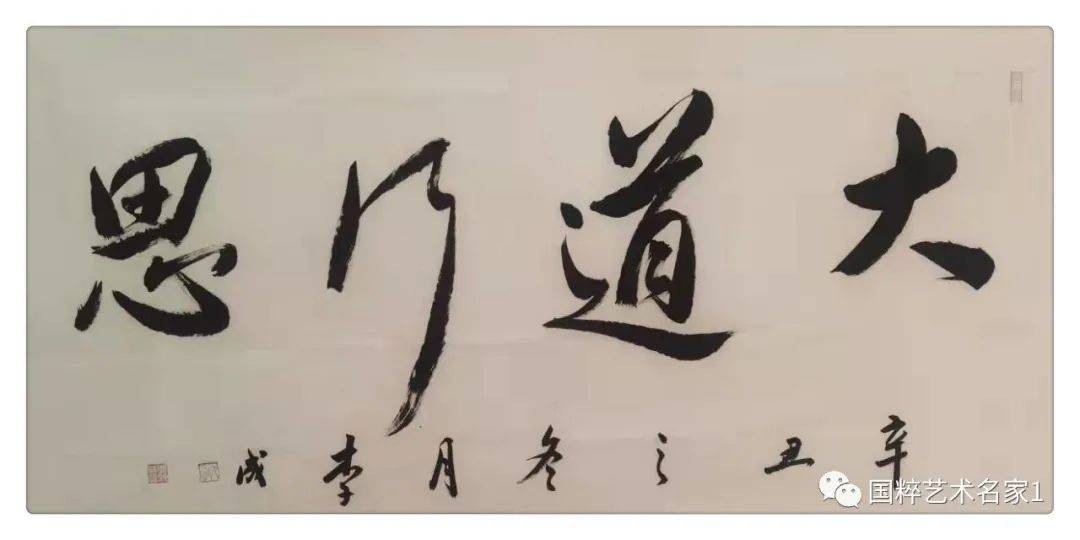 大道行思
辛丑之冬月李成
国粹艺术名家1